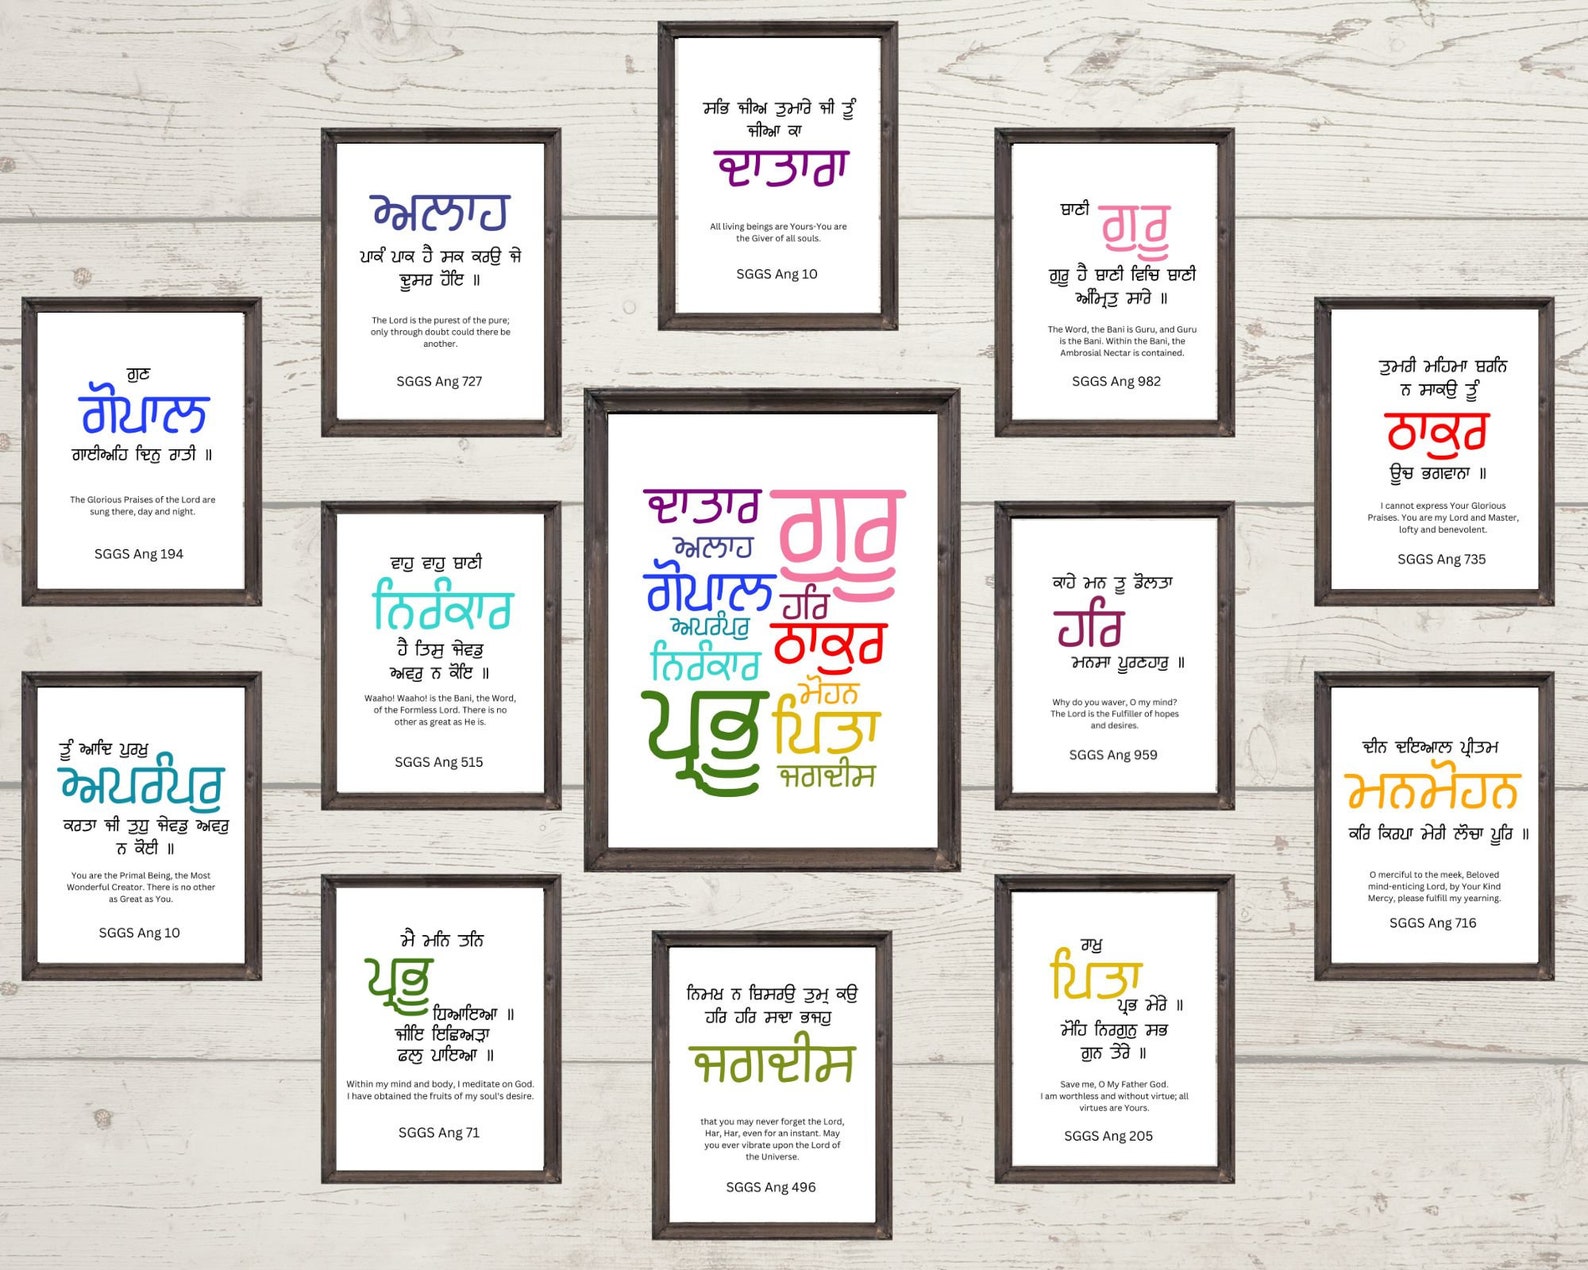 ਸਭਿ ਜੀਅ ਤੁਮਾਰੇ ਜੀ ਤੂੰ
ਜੀਆ ਕਾ
ਦਾਤਾਰਾ
All living beings are Yours-You are
the Giver of all souls.
SGGS Ang 10
ਅਲਾਹ
ਪਾਕੰ ਪਾਕ ਹੈ ਸਕ ਕਰਉ ਜੇ
ਦੂਸਰ ਹੋਇ ॥
The Lord is the purest of the pure;
only through doubt could there be
another.
SGGS Ang 727
ਬਾਣੀ ਗੁਰੂ
ਗੁਰੂ ਹੈ ਬਾਣੀ ਵਿਚਿ ਬਾਣੀ
ਅੰਮ੍ਰਿਤੁ ਸਾਰੇ ॥
The Word, the Bani is Guru, and Guru
is the Bani. Within the Bani, the
Ambrosial Nectar is contained.
SGGS Ang 982
ਗੁਣ
ਗੋਪਾਲ
ਗਾਈਅਹਿ ਦਿਨੁ ਰਾਤੀ ॥
The Glorious Praises of the Lord are
sung there, day and night.
SGGS Ang 194
ਤੁਮਰੀ ਮਹਿਮਾ ਬਰਨਿ
ਨ ਸਾਕਉ ਤੂੰ
ਠਾਕੁਰ
ਊਚ ਭਗਵਾਨਾ ॥
I cannot express Your Glorious
Praises. You are my Lord and Master,
lofty and benevolent.
SGGS Ang 735
ਵਾਹੁ ਵਾਹੁ ਬਾਣੀ
ਨਿਰੰਕਾਰ
ਹੈ ਤਿਸੁ ਜੇਵਡੁ
ਅਵਰੁ ਨ ਕੋਇ ॥
Waaho! Waaho! is the Bani, the Word,
of the Formless Lord. There is no
other as great as He is.
SGGS Ang 515
ਦਾਤਾਰ
ਅਲਾਹ
ਗੋਪਾਲ
ਅਪਰੰਪਰੁ
ਨਿਰੰਕਾਰ
ਪ੍ਰਭੂ
ਗੁਰੂ
ਹਰਿ
ਠਾਕੁਰ
ਮੋਹਨ
ਪਿਤਾ
ਜਗਦੀਸ
ਕਾਹੇ ਮਨ ਤੂ ਡੋਲਤਾ
ਹਰਿ
ਮਨਸਾ ਪੂਰਣਹਾਰੁ ॥
Why do you waver, O my mind?
The Lord is the Fulfiller of hopes
and desires.
SGGS Ang 959
ਤੂੰ ਆਦਿ ਪੁਰਖੁ
ਅਪਰੰਪਰੁ
ਕਰਤਾ ਜੀ ਤੁਧੁ ਜੇਵਡੁ ਅਵਰੁ
ਨ ਕੋਈ ॥
You are the Primal Being, the Most
Wonderful Creator. There is no other
as Great as You.
SGGS Ang 10
ਦੀਨ ਦਇਆਲ ਪ੍ਰੀਤਮ
ਮਨਮੋਹਨ
ਕਰਿ ਕਿਰਪਾ ਮੇਰੀ ਲੋਚਾ ਪੂਰਿ ॥
O merciful to the meek, Beloved
mind-enticing Lord, by Your Kind
Mercy, please fulfill my yearning.
SGGS Ang 716
ਮੈ ਮਨਿ ਤਨਿ
ਪ੍ਰਭੂ
ਧਿਆਇਆ ॥
ਜੀਇ ਇਛਿਅੜਾ
ਫਲੁ ਪਾਇਆ ॥
Within my mind and body, I meditate on God.
I have obtained the fruits of my soul's desire.
SGGS Ang 71
ਨਿਮਖ ਨ ਬਿਸਰਉ ਤੁਮ੍ਹ ਕਉ
ਹਰਿ ਹਰਿ ਸਦਾ ਭਜਹੁ
ਜਗਦੀਸ
that you may never forget the Lord,
Har, Har, even for an instant. May
you ever vibrate upon the Lord of
the Universe.
SGGS Ang 496
ਰਾਖੁ
ਪਿਤਾ
ਪ੍ਰਭ ਮੇਰੇ ॥
ਮੋਹਿ ਨਿਰਗੁਨੁ ਸਭ
ਗੁਨ ਤੇਰੇ ॥
Save me, O My Father God.
I am worthless and without virtue; all
virtues are Yours.
SGGS Ang 205